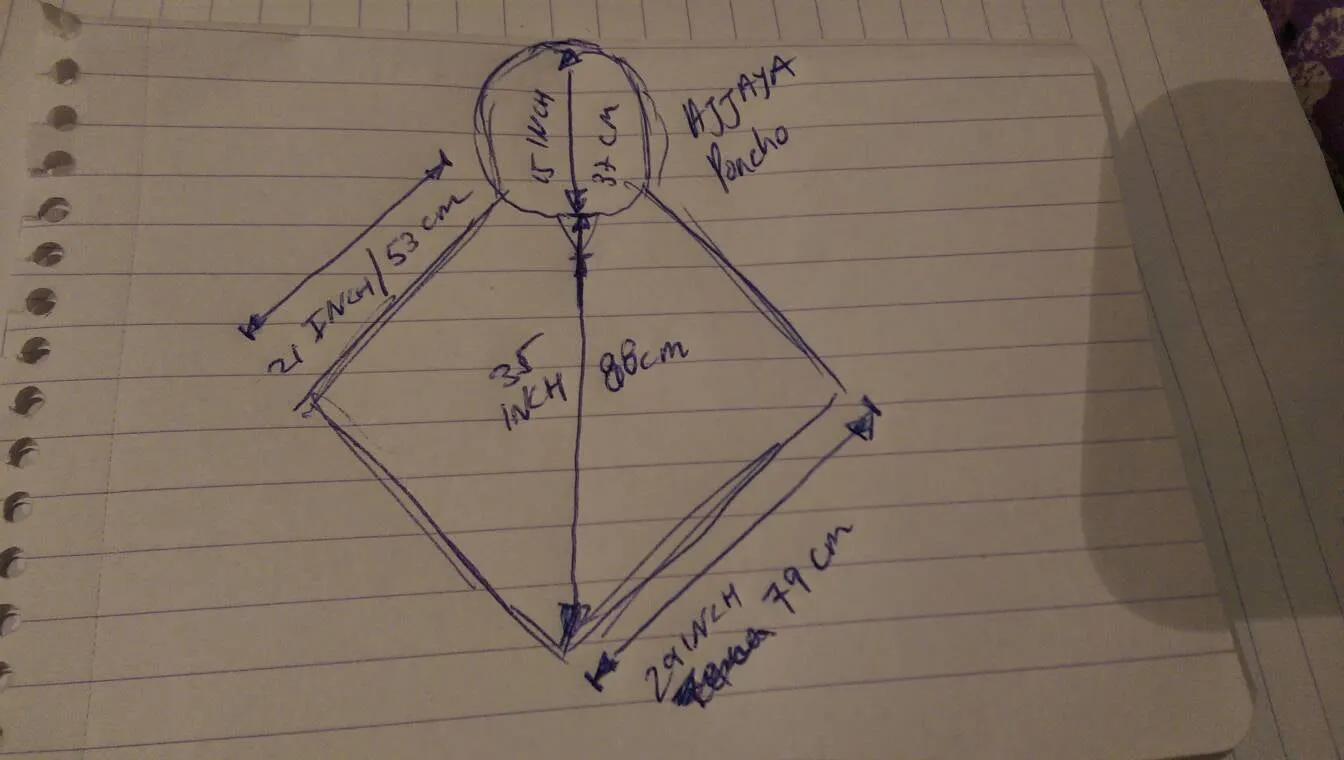 AJJAYA
Poncho
15 INCH
37 cm
21 INCH/53 cm
35
INCH
88cm
29 INCH
79 cm